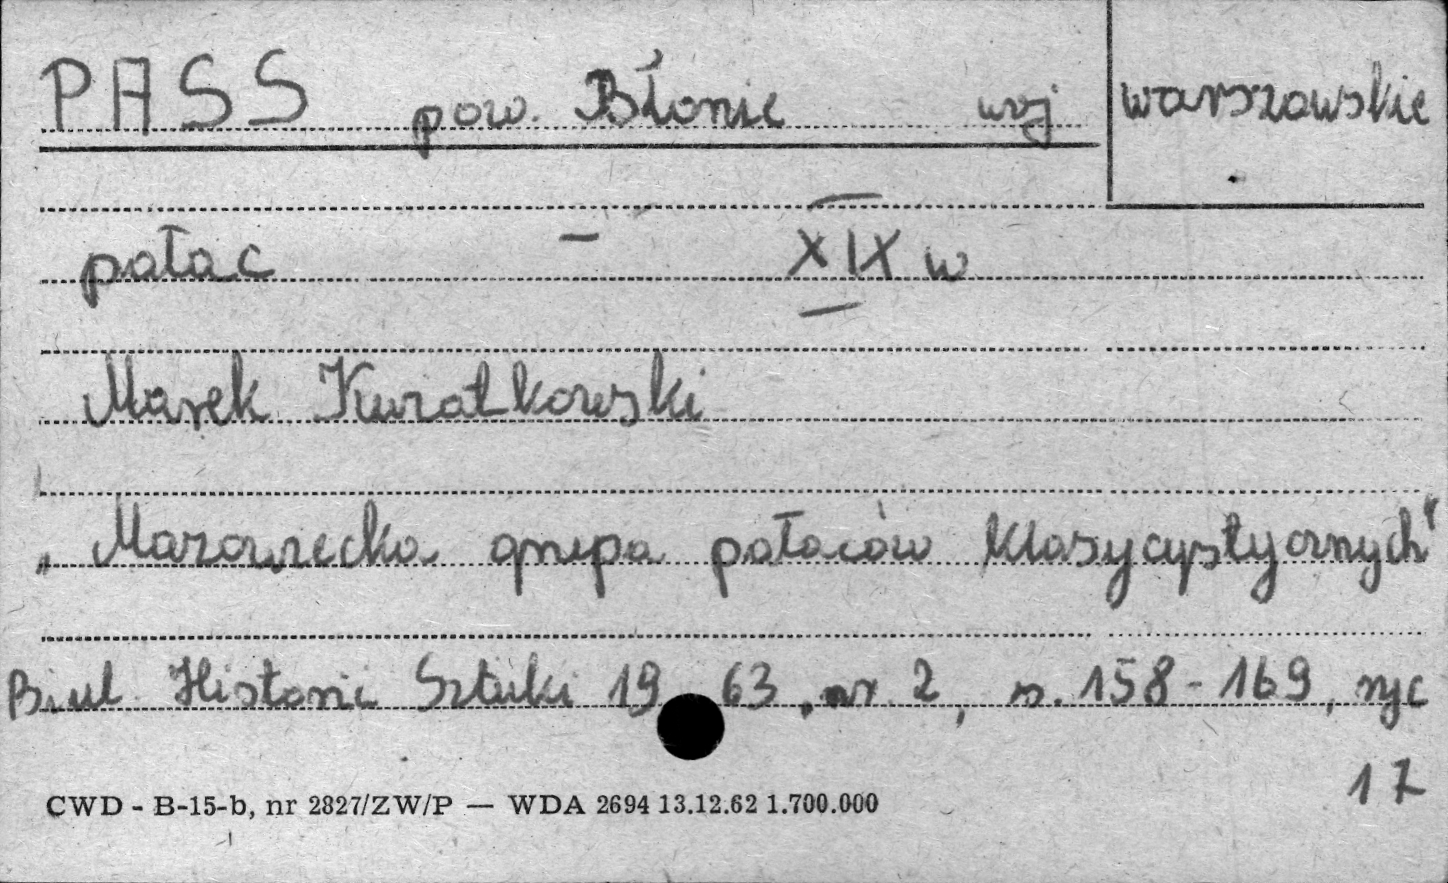 PASS pow. Błonie woj warszawskie
pałac - XIX w
Marek Kwiatkowski
„Mazowiecka grupa pałaców klasycystycznych"
Biul. Historii Sztuki 1963, nr. 2, s. 158-169, ryc
17
CWD - B-15-b, nr 2827/ZW/P — WDA 2694 13.12.62 1.700.000